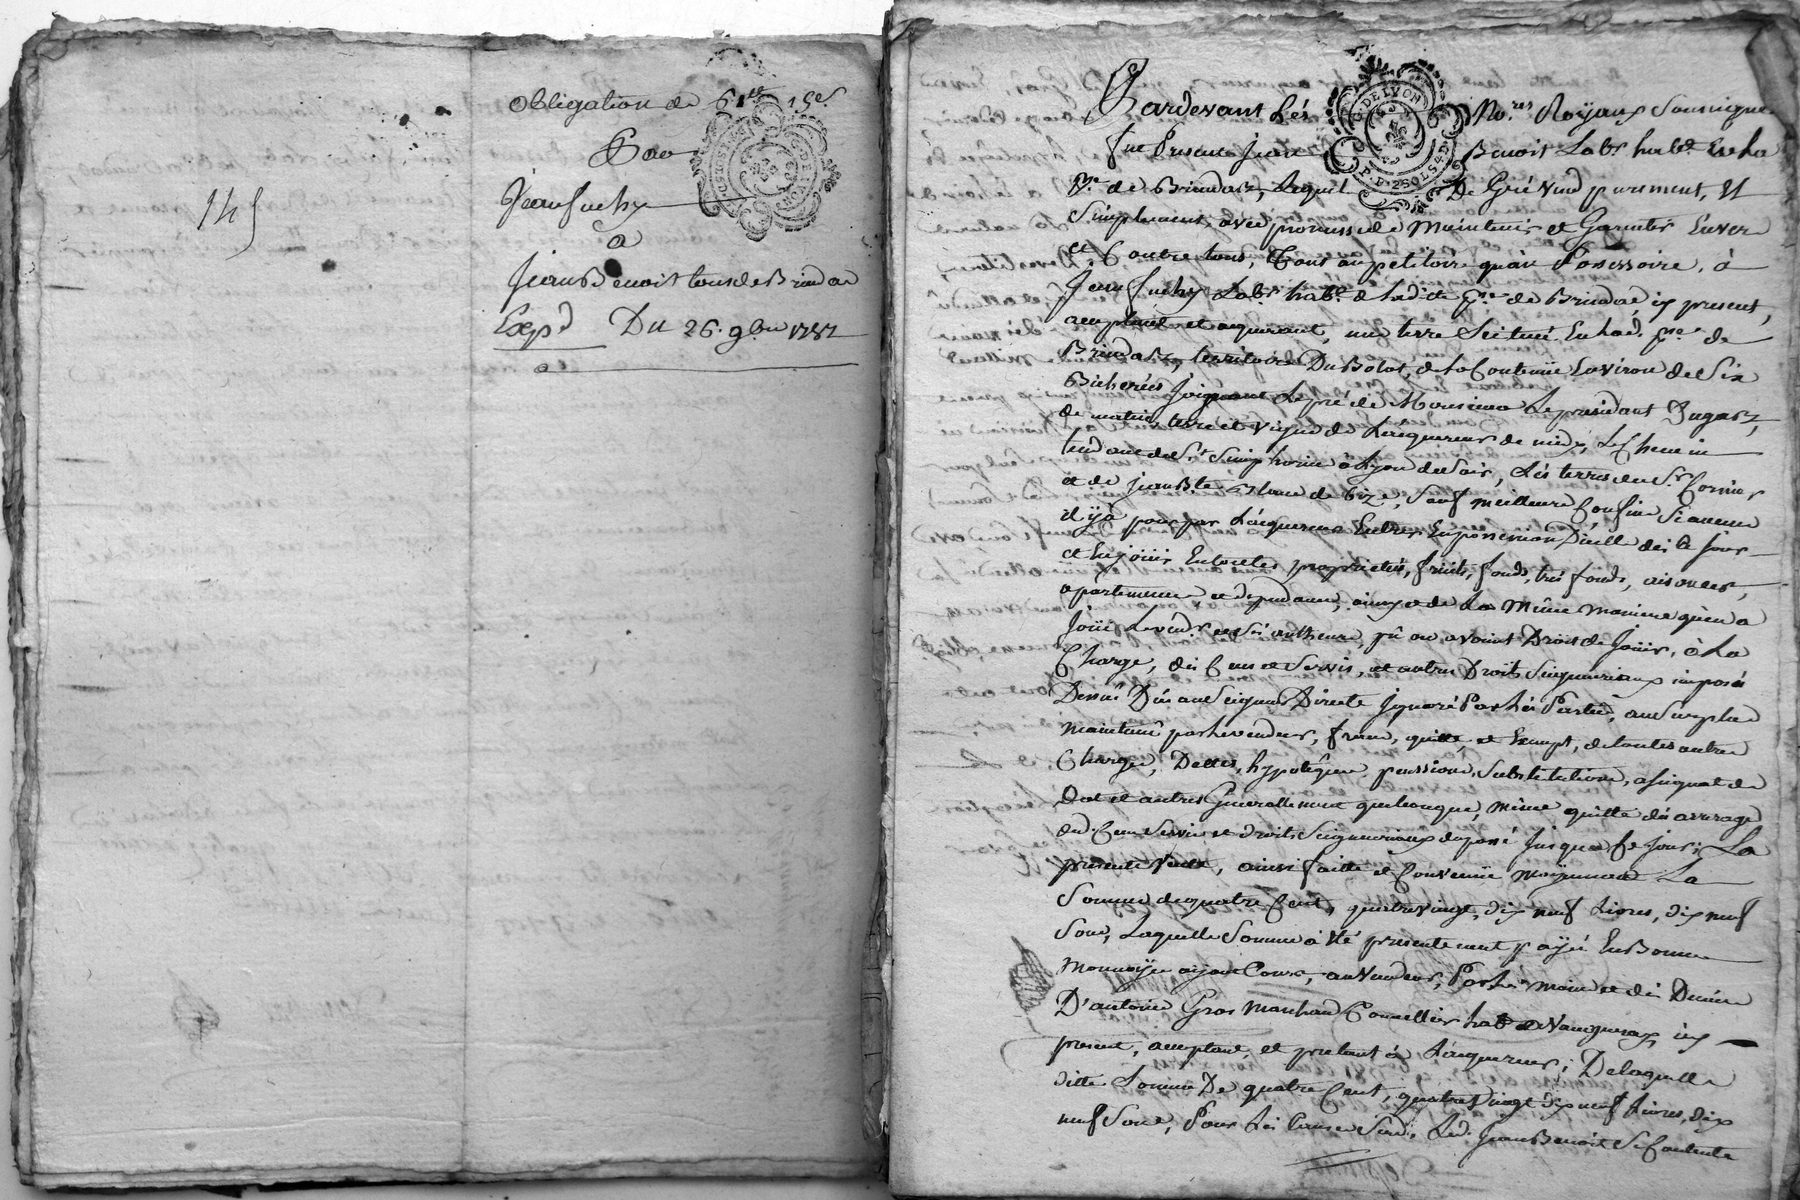 Obligation de 61lt 15s.
Par
Jean fuchy
a
Jean Benoit tous de Brindas
Exp.d Du 26. 9.bre 1787
145
Pardevant Lés No.res Royaux Soussignes
fut Present Jean Benoit Lab.r hab.t En la
P.sse de Brindas, Lequel De Gré Vend purement, Et
Simplement, avec promesse de Maintenir et Garantir Envers
et Contre tous, tant au petitoire qu'au Possessoire, à
Jean fuchy Lab.r hab.t de ladite p.sse de Brindas ici present,
acceptant et acquerant, une terre Scituée En lad. p.sse de
Brindas, territoire Du Bolot, de la Contenüe Environ de Six
Bicherées Joignant Le pré de Monsieur Le president Dugas,
de matin, terre et Vigne de L'acquereur de midy, Le Chemin
tendant de St Simphorien à Lyon de soir, Lés terres du Sr Cornier
et de Jean B.te Blanc de bize, Sauf meilleurs Confins Si aucun
il y a pour par L'acquereur Entrer En possession D'icelle dés Ce Jour
et En joüir En toutes proprietés, fruits, fonds, trés fonds, aisances,
apartenances et dependances, ainsy et de La Même maniere qu'en a
Joüi Le vend.r et Sés autheurs, qu ou avoient Droit de Joüir, à La
Charge, dés Cens et Servis, et autres Droits Seigneuriaux imposés
Dessus Dûs au Seigneur Directe Ignoré Par Lés Parties, au Surplus
Maintenüe par le vendeur, franche, quitte, et Exempt, de toutes autres
Charges, Dettes, hypotêques, pensions, Substitutions, assignat de
Dot et autres Generallement quelconques, même quitte dés arrerages
desd. Cens Servis et droits Seigneuriaux du passé Jusqu'a Ce Jour; La
presente Vente, ainsi faitte et Convenüe moyennant La
Somme de quatre Cent, quatre vingt, dix neuf Livres, dix neuf
Sous, Laquelle Somme à été presentement payée En Bonne
Monnoÿe ayant Cours, au Vendeur, Par Lés mains et dés Deniers
D'antoine Gros Marchand Tonnellier hab.t de Vaugneray, icy
present, acceptant, et pretant à L'acquereur; De laquelle
ditte Somme De quatre Cent, quatre Vingt dix neuf Livres, dix
neuf Sous, Pour Lés Causes Susd., Led. Jean Benoit Se Contente
G. DE LYON
P. P. 2 SOLS 4 D.